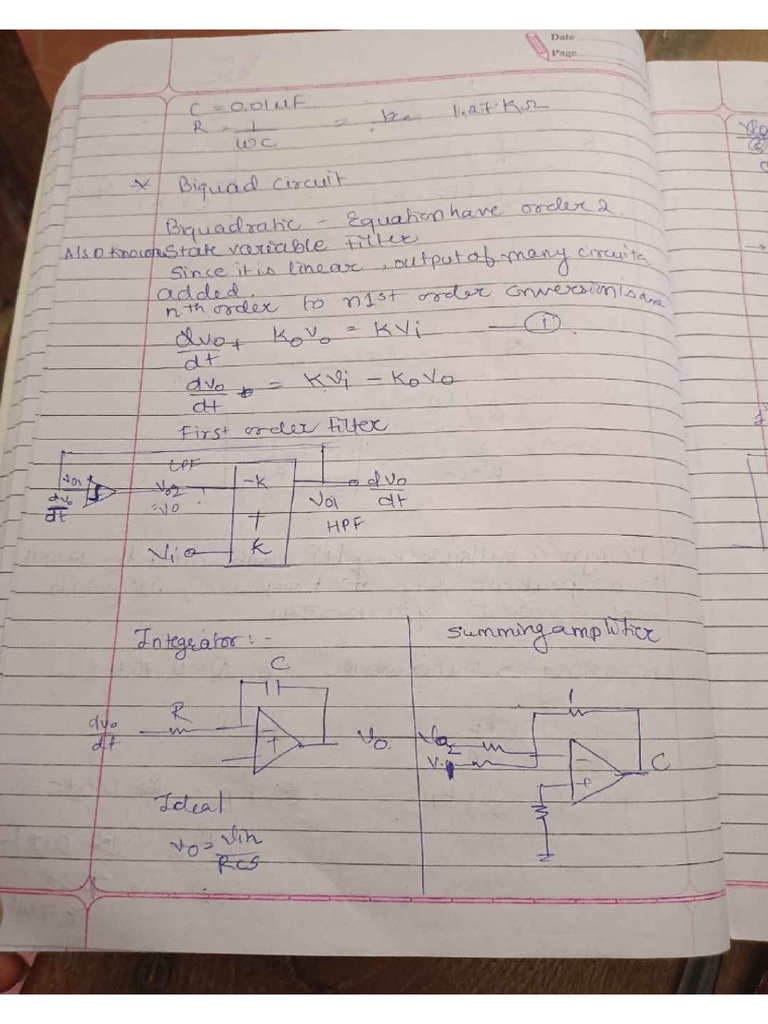 Date
Page
C = 0.01uF
R = 1/wC = 1.27 KΩ
* Biquad Circuit
Biquadratic - Equation have order 2.
Also known State variable filter
Since it is linear, output of many circuits
added.
nth order to n 1st order conversion
dvo/dt + Kovo = KVi — (1).
dvo/dt = KVi - KoVo
First order filter
LPF
vo1
dvo/dt
Vo2
=vo
-K
+
K
Vi
Vo1
HPF
dvo/dt
Integrator :-
C
R
dvo/dt
-
+
Vo.
Ideal
vo = Vin/RCS
Summing amplifier
1
Vo2
-
+
C